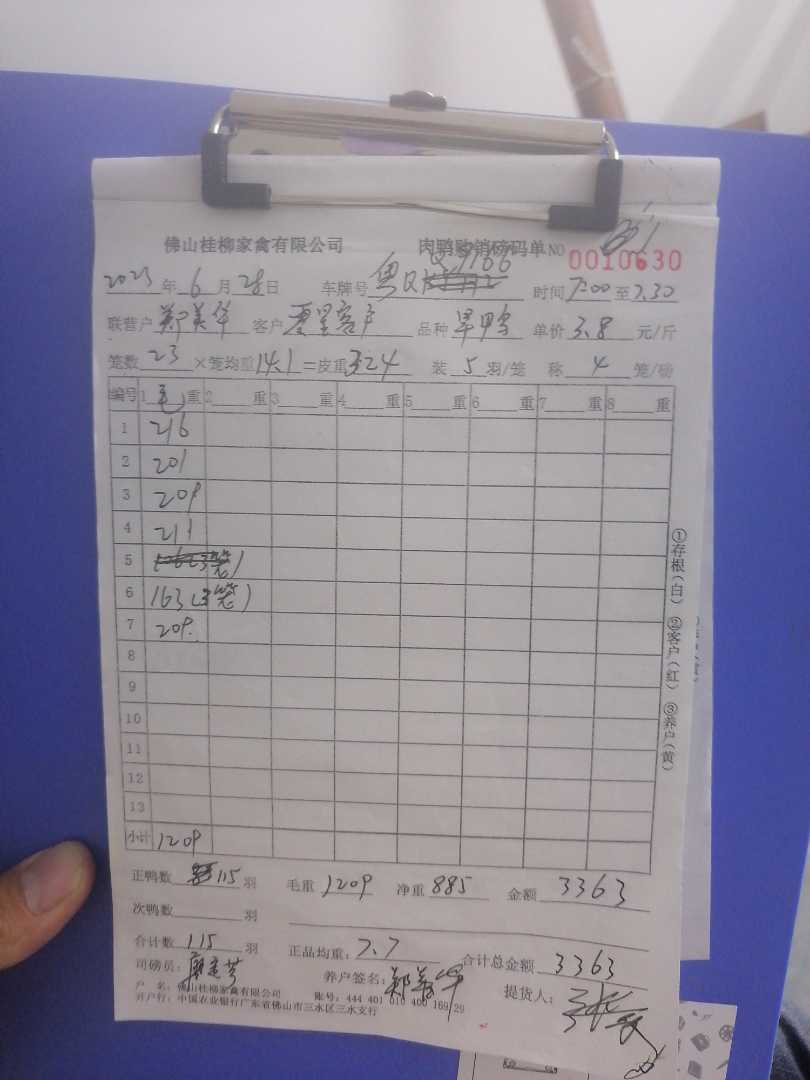 佛山桂柳家禽有限公司 肉鸭购销磅码单 NO 0010630
2023年6月28日 车牌号 时间7:00至7.30
联营户 郑美华 客户 夏星客户 品种 旱鸭 单价3.8元/斤
笼数23×笼均重14.1=皮重324 装5羽/笼 称4笼/磅
编号 1毛重 2重 3重 4重 5重 6重 7重 8重
1 216
2 201
3 209
4 211
5
6 163(3笼)
7 209.
8
9
10
11
12
13
小计 1209
正鸭数115羽 毛重1209 净重885 金额3363
次鸭数 羽
合计数115羽 正品均重:7.7 合计总金额3363
司磅员: 养户签名:郑美华 提货人:
户 名:佛山桂柳家禽有限公司 账号:444 401 010 400 169 29
开户行:中国农业银行广东省佛山市三水区三水支行
①存根(白) ②客户(红) ③养户(黄)